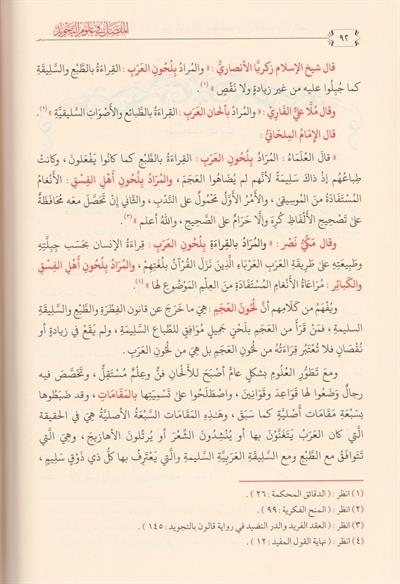 المفصل في علوم التجويد
٩٢
قال شيخ الإسلام زكريّا الأنصاريُّ : « والمرادُ بِلُحُونِ العَرَبِ : القِرَاءَةُ بالطَّبْعِ والسَّلِيقَةِ
كما جُبِلُوا عليه من غيرِ زيادةٍ ولا نَقْصٍ »(١).
وقال مُلَّا عليٌّ القَارِيْ : « والمرادُ بألحان العَرَبِ : القِرَاءَةُ بالطبائعِ والأَصْوَاتِ السَّلِيقيَّةِ »(٢).
قال الإِمَامُ المِلحَانيُّ :
« قالَ العُلَمَاءُ : المُرَادُ بِلُحُونِ العَرَبِ : القِرَاءَةُ بالطَّبْعِ كما كانُوا يَفْعَلونَ ، وكانتْ
طِبَاعُهُم إذْ ذاكَ سَلِيمَةً لأنَّهم لم يُضَاهُوا العَجَمَ ، والمرادُ بِلُحُونِ أَهْلِ الفِسْقِ : الأنغامُ
المُسْتَفَادَةُ مِنَ المُوسِيقى ، والأَمْرُ الأَوَّلُ مَحْمُولٌ على النَّدْبِ ، والثاني إنْ تَحَصَّلَ مَعَهُ مُحَافَظَةٌ
على تَصْحِيحِ الأَلْفَاظِ كُرِهَ وإلَّا حَرَامٌ على الصَّحِيحِ ، واللهُ أعلم »(٣).
وقال مَكِّيْ نَصْر : « والمرَادُ بالقِراءَةِ بِلُحُونِ العَرَبِ : قِراءَةُ الإنسانِ بحَسَبِ جِبِلَّتِهِ
وطَبِيعَتِهِ على طَرِيقَةِ العَرَبِ العَرْبَاءِ الَّذِينَ نَزَلَ القُرْآنُ بلُغَتِهِمْ ، والمرَادُ بِلُحُونِ أَهْلِ الفِسْقِ
والكَبائِرِ : مُرَاعَاةُ الأَنْغَامِ المُسْتَفَادَةِ مِنَ العِلْمِ المَوْضُوعِ لَهَا »(٤).
ويُفْهَمُ من كَلَامِهِم أنَّ لُحُونَ العَجَمِ : هِيَ ما خَرَجَ عن قانونِ الفِطْرَةِ والطَّبْعِ والسَّلِيقَةِ
السليمةِ ، فمَنْ قَرَأَ من العَجَمِ بلَحْنٍ جَميلٍ مُوَافِقٍ للطِّباعِ السَّلِيمَةِ ، ولم يَقَعْ في زيادةٍ أو
نُقْصَانٍ فلا تُعْتَبَرُ قِرَاءَتُهُ من لُحُونِ العَجَمِ بل هِيَ من لُحُونِ العَرَبِ .
ومعَ تَطَوُّرِ العُلُومِ بشكلٍ عامٍّ أَصْبَحَ للأَلحانِ فَنٌّ وعِلْمٌ مُسْتَقِلٌّ ، وتَخَصَّصَ فيه
رجالٌ وَضَعُوا لها قَوَاعِدَ وقَوَانِينَ ، واصْطَلَحُوا على تَسْمِيَتِهَا بالمَقَامَاتِ ، وقد ضَبَطُوها
بِسَبْعَةِ مَقَامَاتٍ أَصْلِيَّةٍ كما سَبَقَ ، وهَـٰذِهِ المَقَامَاتُ السَّبْعَةُ الأَصْلِيَّةُ هِيَ في الحقيقة
الَّتِي كان العَرَبُ يَتَغَنَّوْنَ بها أو يُنْشِدُونَ الشِّعْرَ أو يُرَتِّلُونَ الأَهازيجَ ، وهِيَ الَّتي
تَتَوافَقُ مع الطَّبْعِ ومع السَّلِيقَةِ العَرَبِيَّةِ السَّلِيمةِ والَّتي يَعْتَرِفُ بها كلُّ ذي ذَوْقٍ سَلِيمٍ ،
(١) انظر : ( الدقائق المحكمة : ٢٦ ) .
(٢) انظر : ( المنح الفكرية : ٩٩ ) .
(٣) انظر : ( العقد الفريد والدر النضيد في رواية قالون بالتجويد : ١٤٥ ) .
(٤) انظر : ( نهاية القول المفيد : ١٢ ) .